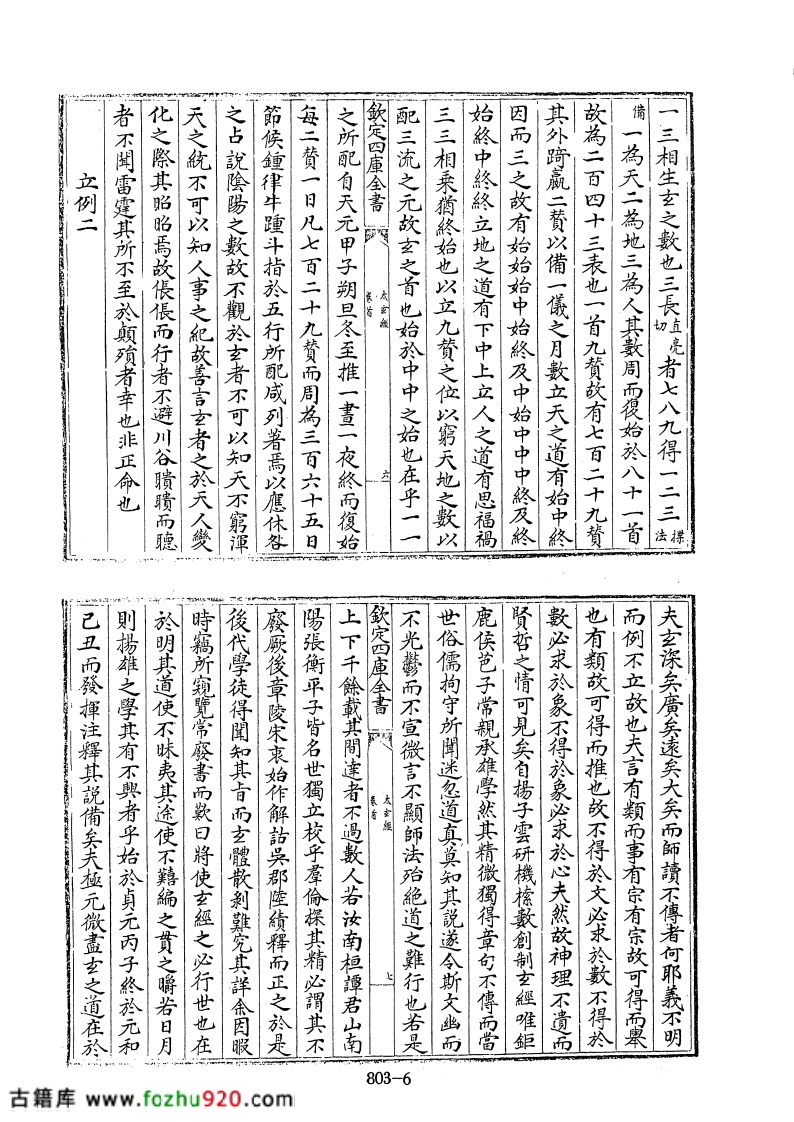 一三相生玄之數也三長直亮切者七八九得一二三揲法
備一為天二為地三為人其數周而復始於八十一首
故為二百四十三表也一首九贊故有七百二十九贊
其外踦嬴二贊以備一儀之月數立天之道有始中終
因而三之故有始始始中始終及中始中中中終及終
始終中終終立地之道有下中上立人之道有思福禍
三三相乘猶終始也以立九贊之位以窮天地之數以
配三流之元故玄之首也始於中中之始也在乎一一
欽定四庫全書
太玄經
卷首
六
之所配自天元甲子朔旦冬至推一晝一夜終而復始
每二贊一日凡七百二十九贊而周為三百六十五日
節候鍾律生踵斗指於五行所配咸列著焉以應休咎
之占說陰陽之數故不觀於玄者不可以知天不窮渾
天之統不可以知人事之紀故善言玄者之於天人變
化之際其昭昭焉故倀倀而行者不避川谷聵聵而聽
者不聞雷霆其所不至於顛殞者幸也非正命也
立例二
夫玄深矣廣矣遠矣大矣而師讀不傳者何耶義不明
而例不立故也夫言有類而事有宗有宗故可得而舉
也有類故可得而推也故不得於文必求於數不得於
數必求於象不得於象必求於心夫然故神理不遺而
賢哲之情可見矣自揚子雲研機榡數創制玄經唯鉅
鹿侯芭子常親承雄學然其精微獨得章句不傳而當
世俗儒拘守所聞迷忽道真莫知其說遂令斯文幽而
不光鬱而不宣微言不顯師法殆絕道之難行也若是
欽定四庫全書
太玄經
卷首
七
上下千餘載其間達者不過數人若汝南桓譚君山南
陽張衡平子皆名世獨立校乎羣倫探其精必謂其不
廢厥後章陵宋衷始作解詁吳郡陸績釋而正之於是
後代學徒得聞知其旨而玄體散剝難究其詳余因暇
時竊所窺覽常廢書而歎曰將使玄經之必行世也在
於明其道使不昧夷其途使不囏編之貫之䁱若日月
則揚雄之學其有不興者乎始於貞元丙子終於元和
己丑而發揮注釋其說備矣夫極元微盡玄之道在於
803-6
古籍库 www.fozhu920.com